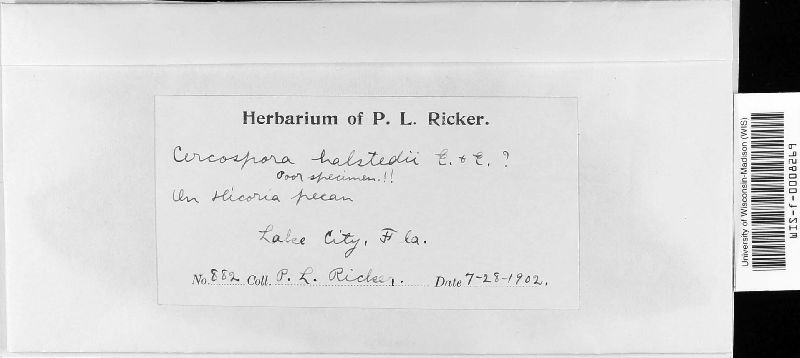 Herbarium of P. L. Ricker.
Cercospora halstedii E. & E. ?
Poor specimen.!!
On Hicoria pecan
Lake City, Fla.
No. 882 Coll. P. L. Ricker. Date 7-28-1902.
University of Wisconsin-Madison (WIS)
WIS-f-0008269